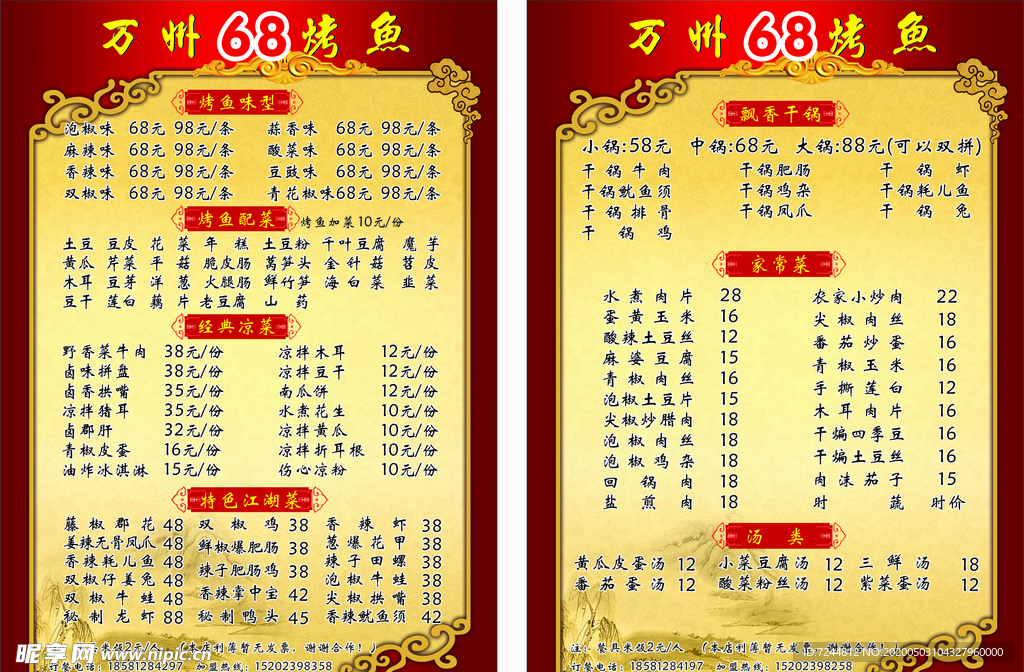 万州68烤鱼
烤鱼味型
泡椒味 68元 98元/条 蒜香味 68元 98元/条
麻辣味 68元 98元/条 酸菜味 68元 98元/条
香辣味 68元 98元/条 豆豉味 68元 98元/条
双椒味 68元 98元/条 青花椒味68元 98元/条
烤鱼配菜 烤鱼加菜10元/份
土豆 豆皮 花菜 年糕 土豆粉 千叶豆腐 魔芋
黄瓜 芹菜 平菇 脆皮肠 莴笋头 金针菇 苕皮
木耳 豆芽 洋葱 火腿肠 鲜竹笋 海白菜 韭菜
豆干 莲白 藕片 老豆腐 山药
经典凉菜
野香菜牛肉 38元/份 凉拌木耳 12元/份
卤味拼盘 38元/份 凉拌豆干 12元/份
卤香拱嘴 35元/份 南瓜饼 12元/份
凉拌猪耳 35元/份 水煮花生 10元/份
卤郡肝 32元/份 凉拌黄瓜 10元/份
青椒皮蛋 16元/份 凉拌折耳根 10元/份
油炸冰淇淋 15元/份 伤心凉粉 10元/份
特色江湖菜
藤椒郡花 48 双椒鸡 38 香辣虾 38
姜辣无骨凤爪 48 鲜椒爆肥肠 38 葱爆花甲 38
香辣耗儿鱼 48 辣子肥肠鸡 38 辣子田螺 38
双椒仔姜兔 48 香辣掌中宝 42 泡椒牛蛙 38
双椒牛蛙 48 秘制鸭头 45 尖椒拱嘴 38
秘制龙虾 88 香辣鱿鱼须 42
米饭2元/人 (本店利薄暂无发票，谢谢合作！)
订餐电话：18581284297 加盟热线：15202398358
万州68烤鱼
飘香干锅
小锅:58元 中锅:68元 大锅:88元(可以双拼)
干锅牛肉 干锅肥肠 干锅虾
干锅鱿鱼须 干锅鸡杂 干锅耗儿鱼
干锅排骨 干锅凤爪 干锅兔
干锅鸡
家常菜
水煮肉片 28 农家小炒肉 22
蛋黄玉米 16 尖椒肉丝 18
酸辣土豆丝 12 番茄炒蛋 16
麻婆豆腐 15 青椒玉米 16
青椒肉丝 16 手撕莲白 12
泡椒土豆片 15 木耳肉片 16
尖椒炒腊肉 18 干煸四季豆 16
泡椒肉丝 18 干煸土豆丝 16
泡椒鸡杂 18 肉沫茄子 15
回锅肉 18 时蔬 时价
盐煎肉 18
汤类
黄瓜皮蛋汤 12 小菜豆腐汤 12 三鲜汤 18
番茄蛋汤 12 酸菜粉丝汤 12 紫菜蛋汤 12
注：餐具米饭2元/人 (本店利薄暂无发票，谢谢合作！)
订餐电话：18581284197 加盟热线：15202398258
昵享网 www.nipic.cn
ID:7244518 NO:20200503104327960000